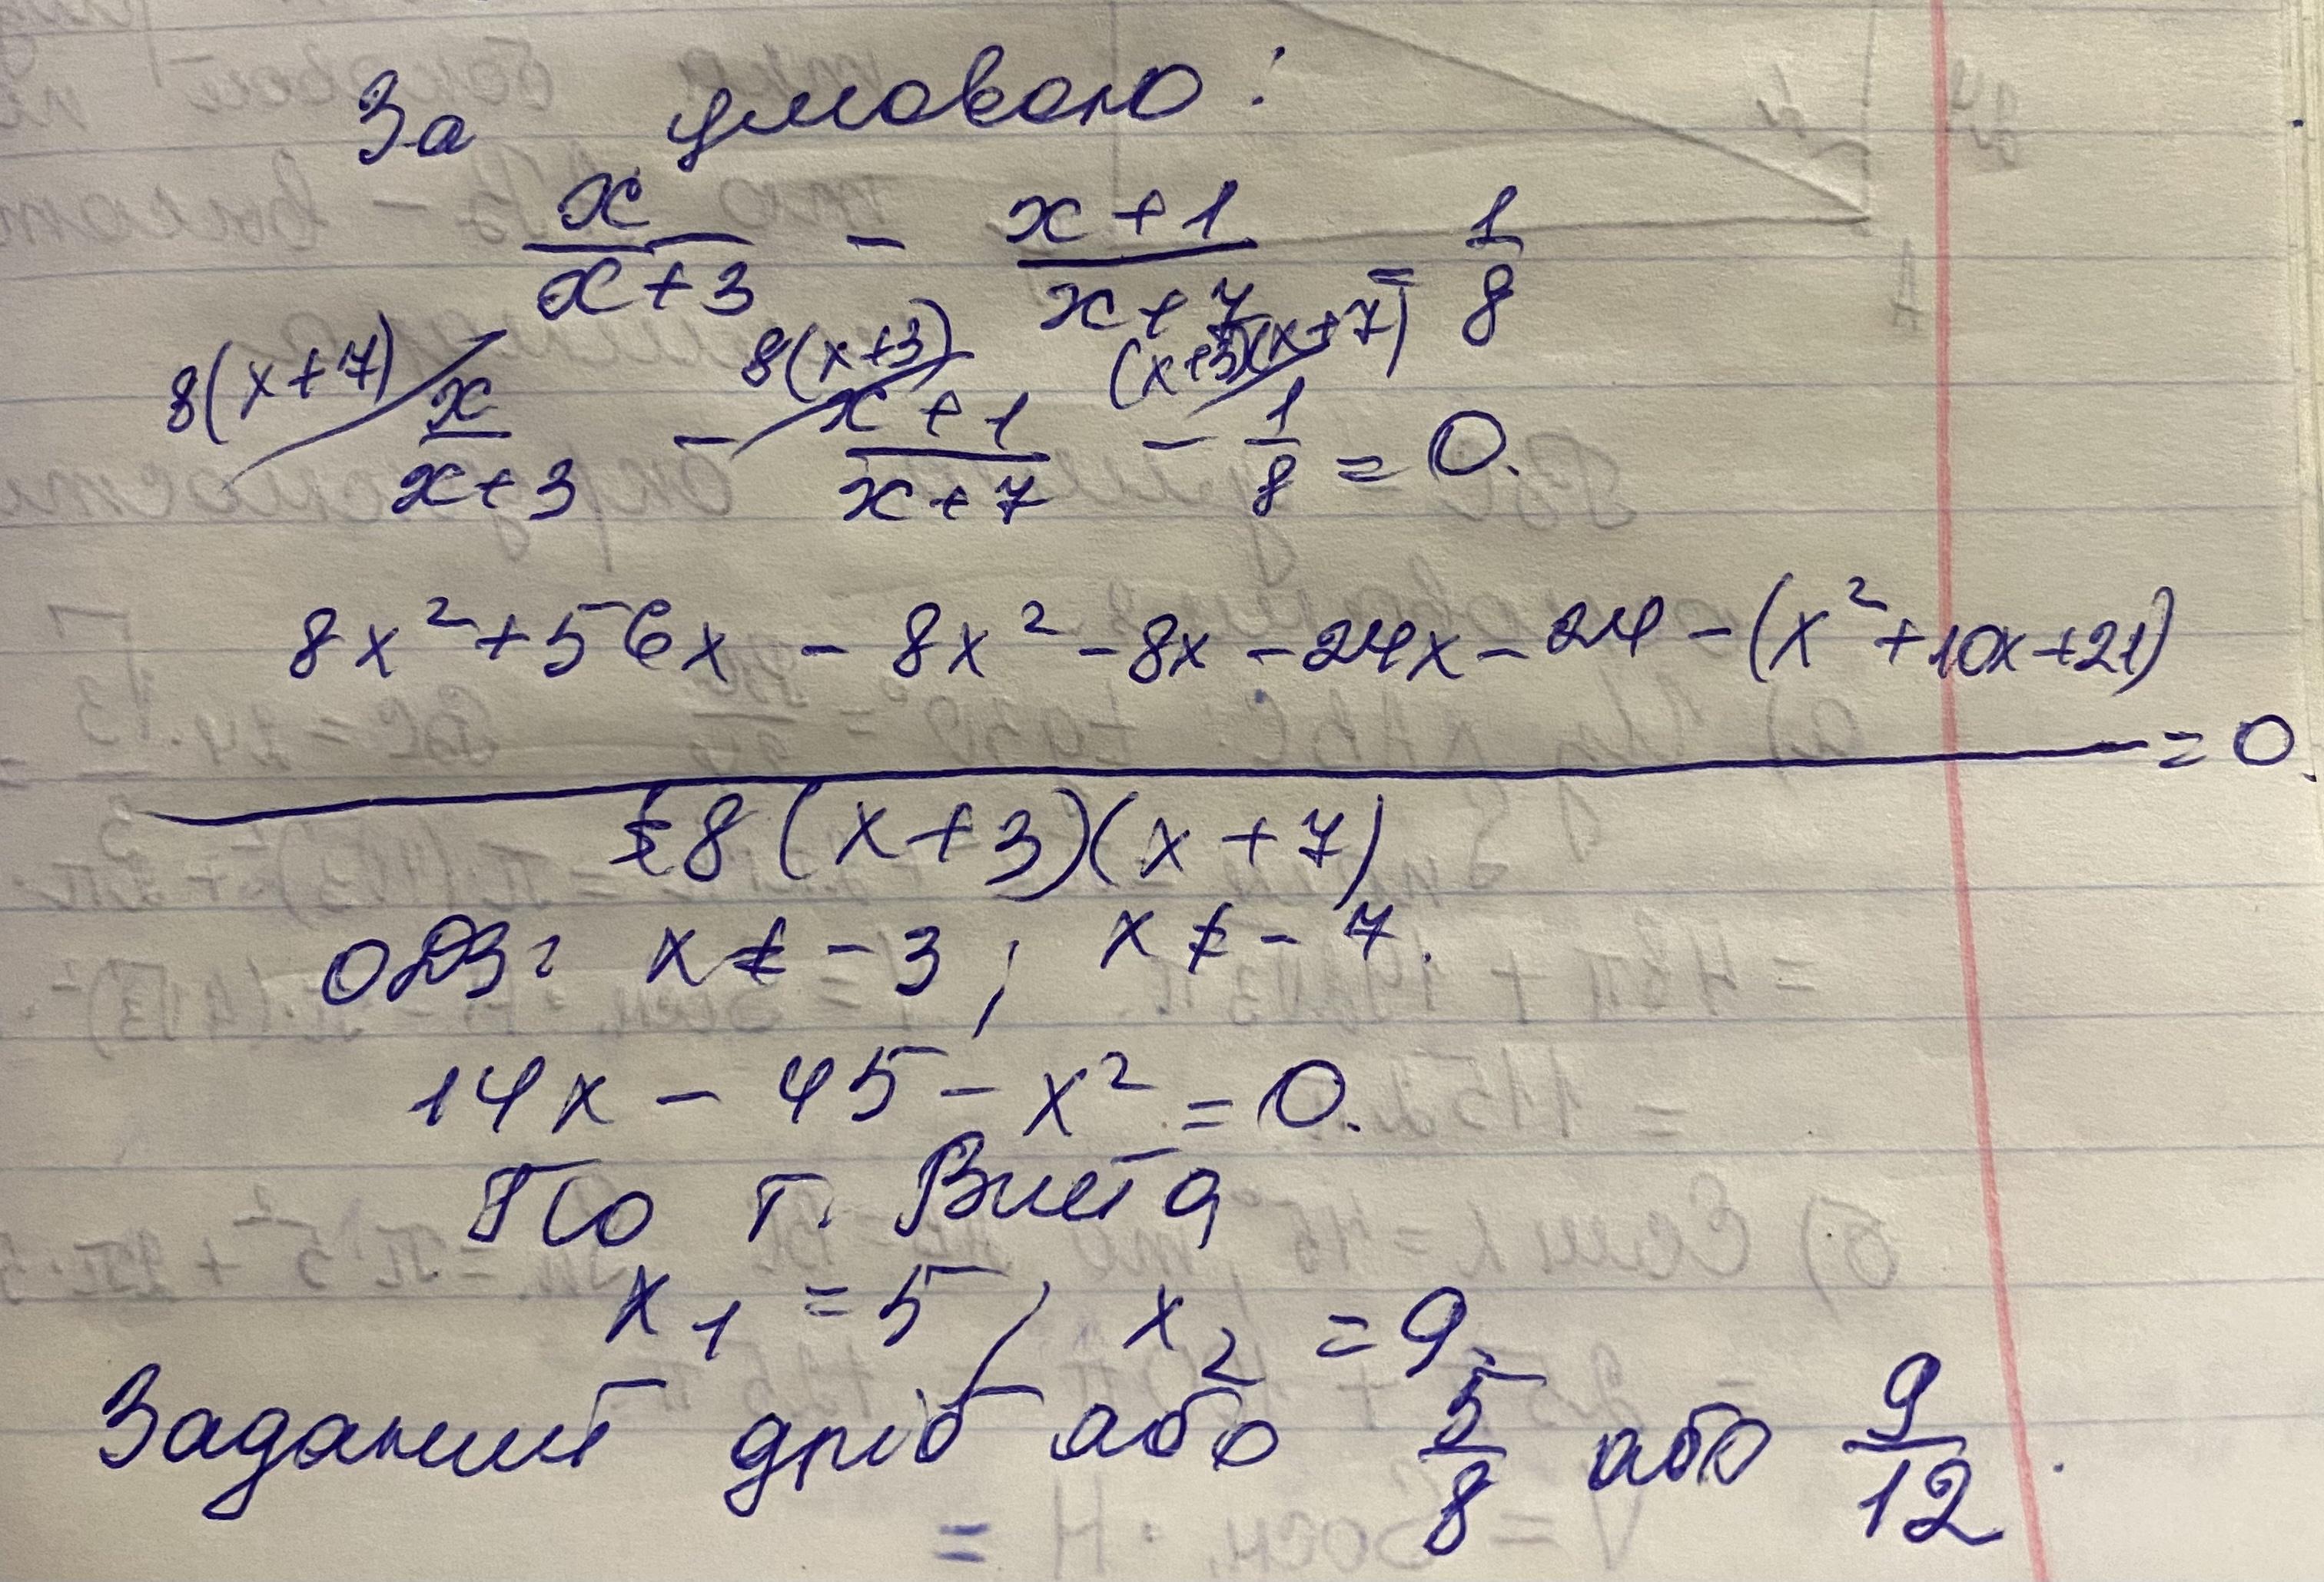 За умовою:
x/(x+3) - (x+1)/(x+7) = 1/8
8(x+7)/ x/(x+3) - 8(x+3)/ (x+1)/(x+7) - (x+3)(x+7)/ 1/8 = 0.
8x² + 56x - 8x² - 8x - 24x - 24 - (x² + 10x + 21)
= 0.
8(x+3)(x+7)
ОДЗ: x ≠ -3; x ≠ -7.
14x - 45 - x² = 0.
По т. Виета
x₁ = 5; x₂ = 9.
Заданий дріб або 5/8 або 9/12.